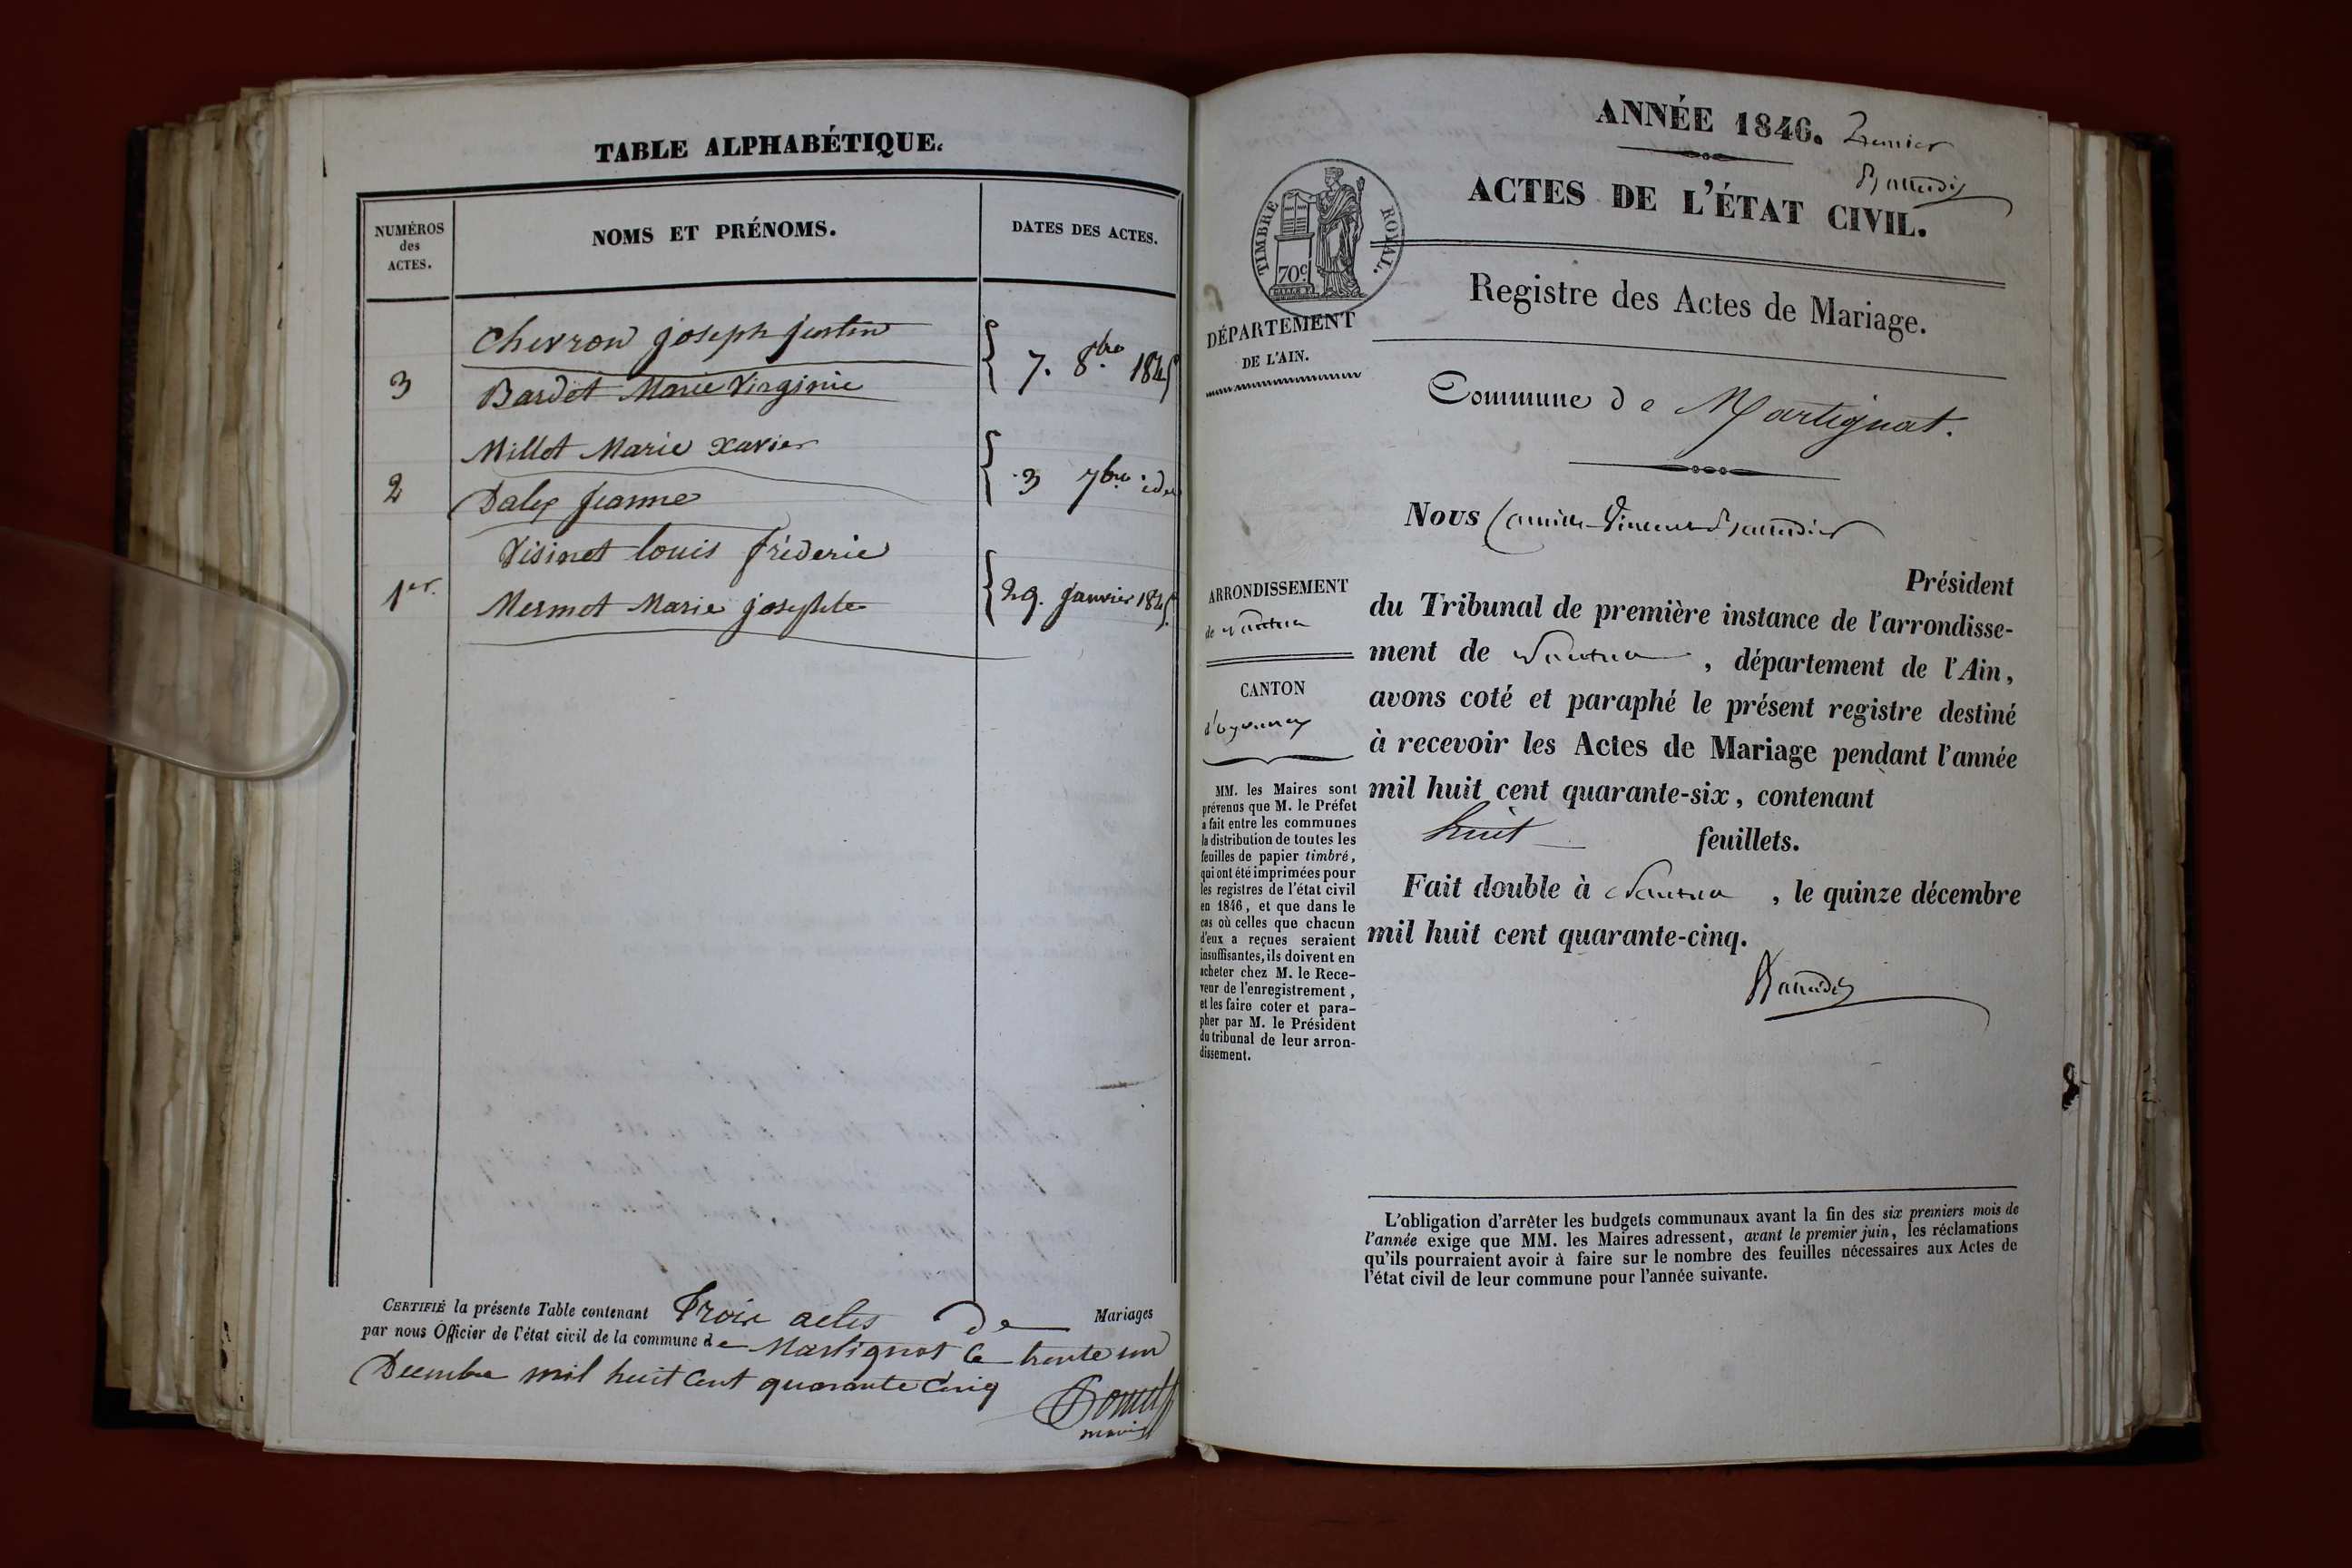 TABLE ALPHABÉTIQUE.
NUMÉROS
des
ACTES.
NOMS ET PRÉNOMS.
DATES DES ACTES.
Chevron joseph justin
3
Bardet Marie Virginie
7. 8bre 1845
Millot Marie xavier
2
Jeanne
3 7bre
Visinet louis fréderic
1er.
Mermet Marie josephte
29. janvier 1845
CERTIFIÉ la présente Table contenant Trois actes de Mariages
par nous Officier de l'état civil de la commune de Martignat le trente un
Decembre mil huit Cent quarante Cinq
ANNÉE 1846. Premier
ACTES DE L'ÉTAT CIVIL.
TIMBRE ROYAL.
70c
Registre des Actes de Mariage.
DÉPARTEMENT
DE L'AIN.
Commune de Martignat.
Nous
ARRONDISSEMENT
de Nantua
CANTON
d'oyonnax
MM. les Maires sont
prévenus que M. le Préfet
a fait entre les communes
la distribution de toutes les
feuilles de papier timbré,
qui ont été imprimées pour
les registres de l'état civil
en 1846, et que dans le
cas où celles que chacun
d'eux a reçues seraient
insuffisantes, ils doivent en
acheter chez M. le Rece-
veur de l'enregistrement,
et les faire coter et para-
pher par M. le Président
du tribunal de leur arron-
dissement.
Président
du Tribunal de première instance de l'arrondisse-
ment de Nantua, département de l'Ain,
avons coté et paraphé le présent registre destiné
à recevoir les Actes de Mariage pendant l'année
mil huit cent quarante-six, contenant
huit feuillets.
Fait double à Nantua, le quinze décembre
mil huit cent quarante-cinq.
L'obligation d'arrêter les budgets communaux avant la fin des six premiers mois de
l'année exige que MM. les Maires adressent, avant le premier juin, les réclamations
qu'ils pourraient avoir à faire sur le nombre des feuilles nécessaires aux Actes de
l'état civil de leur commune pour l'année suivante.